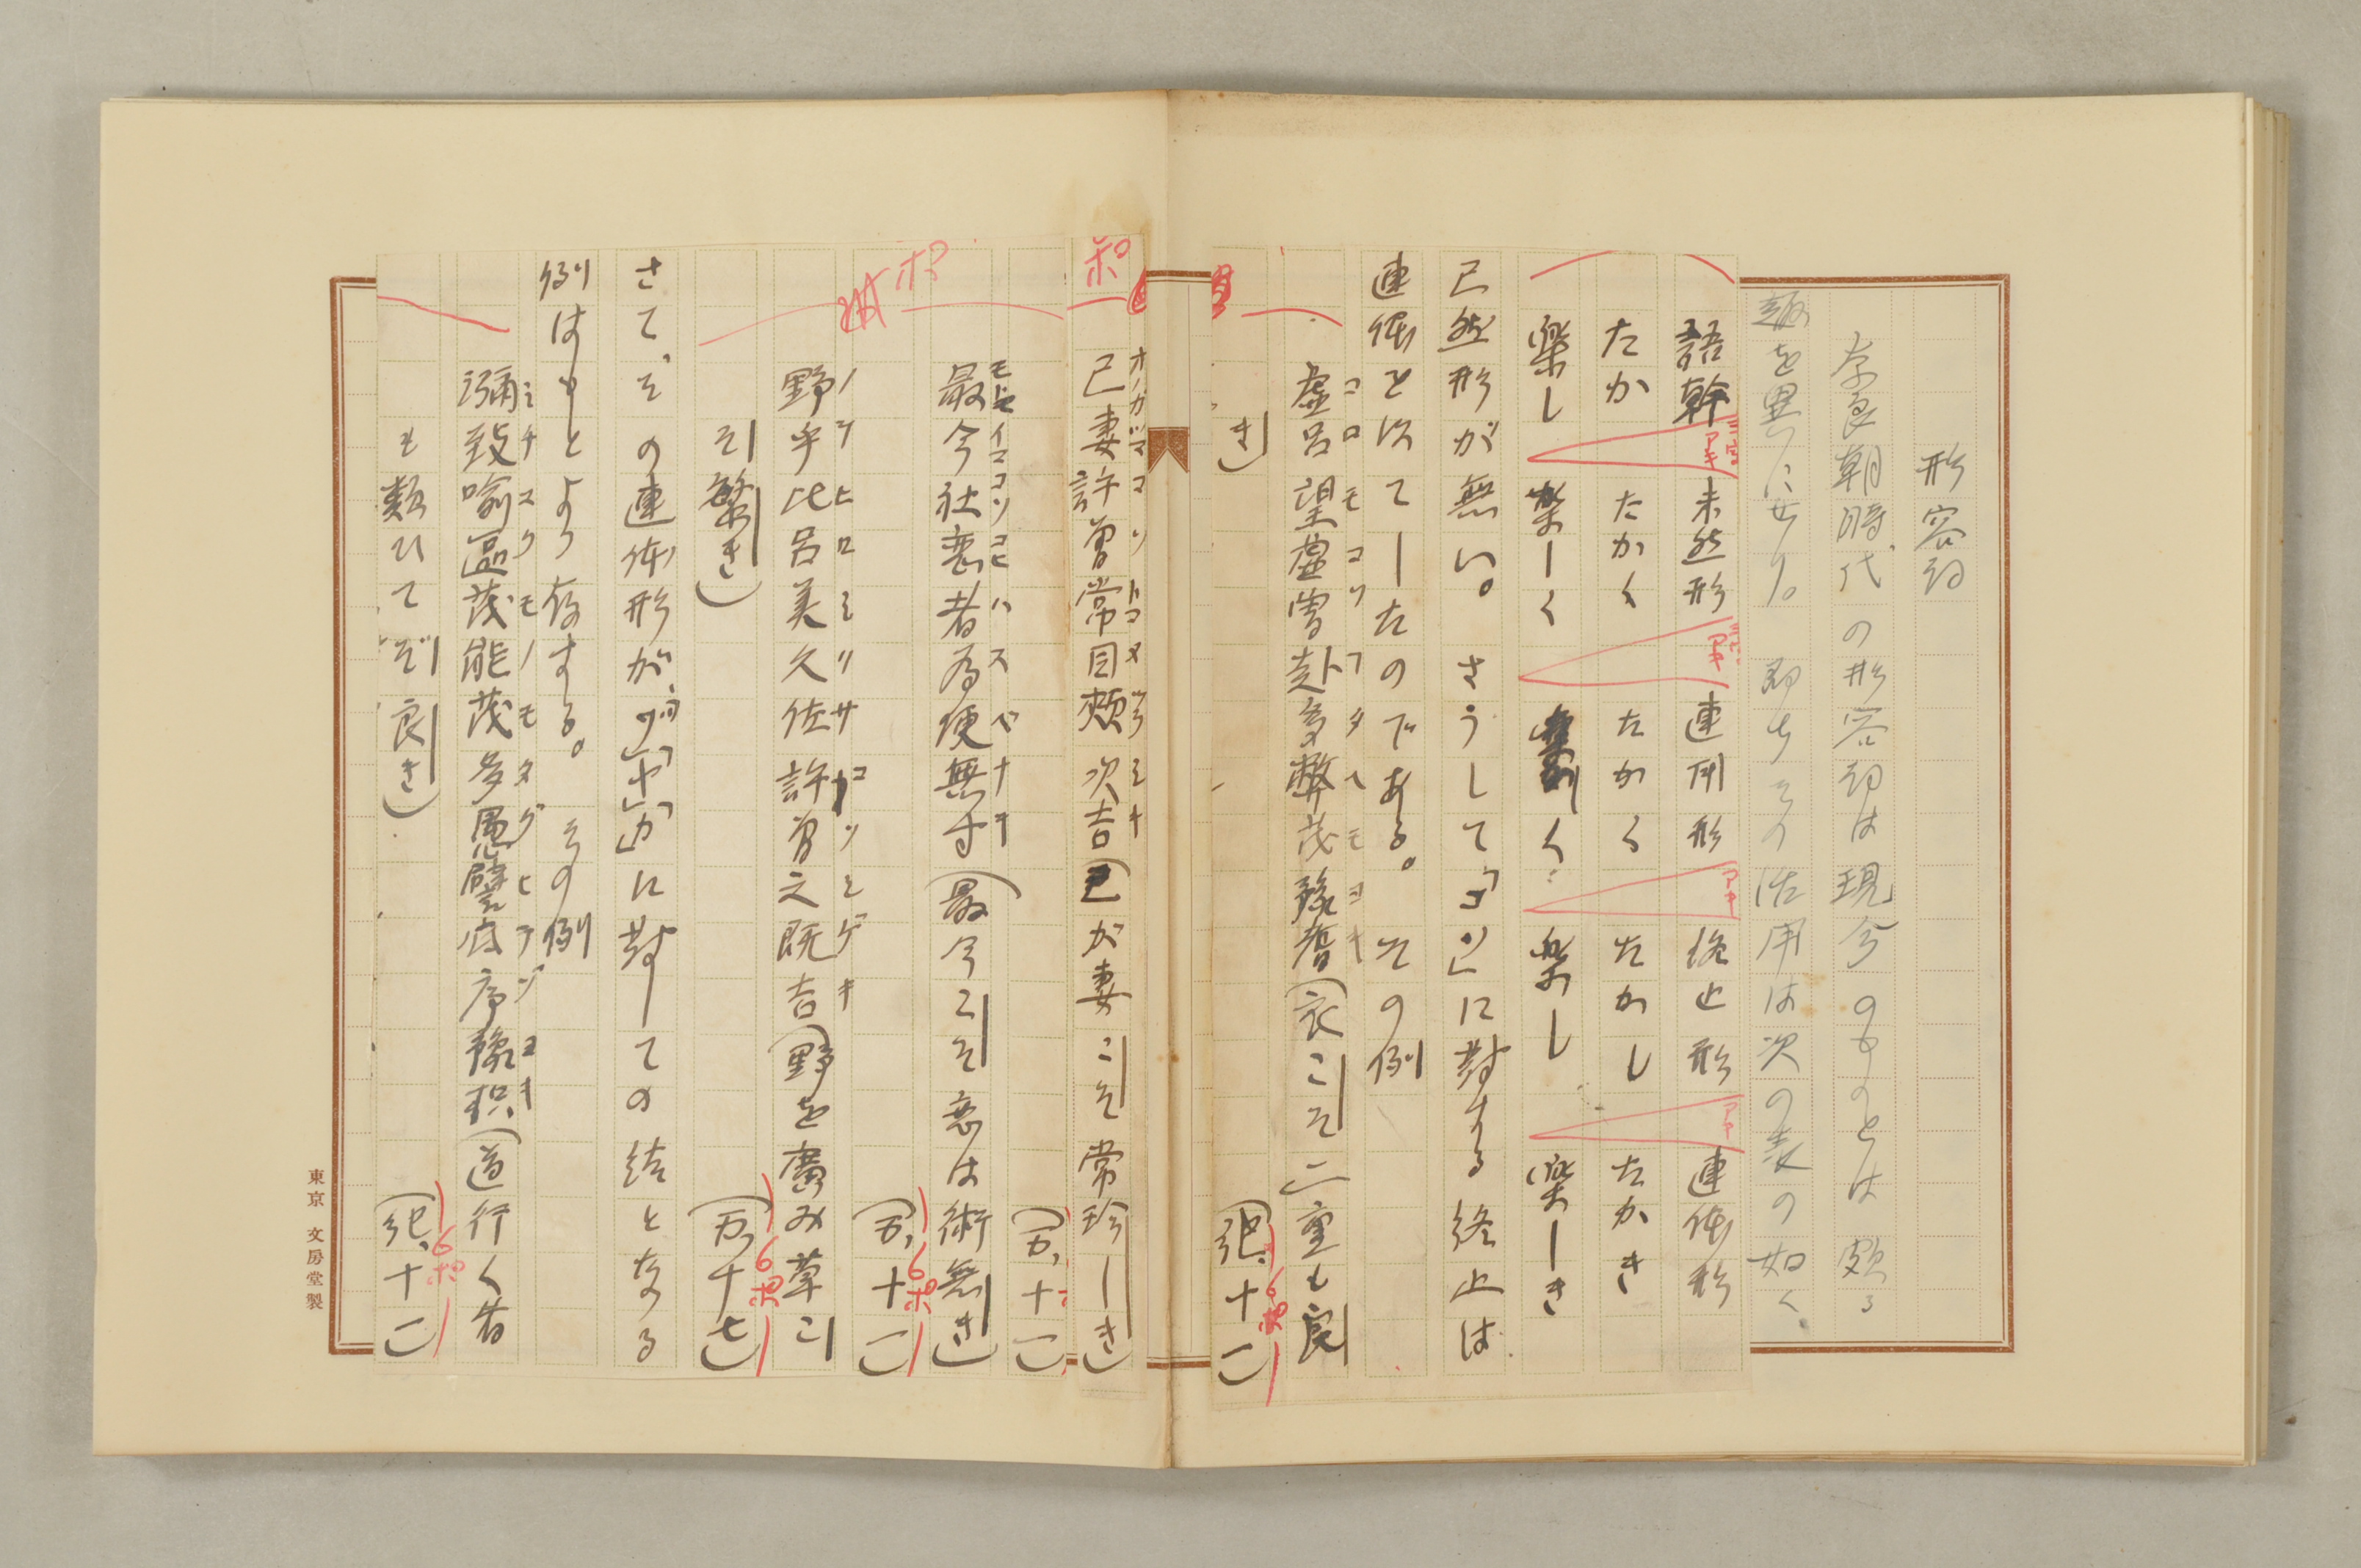 形容詞
奈良朝時代の形容詞は現今のものとは頗る
趣を異にせり。即ちその活用は次の表の如く
語幹 未然形 連用形 終止形 連体形
たか たかく たかく たかし たかき
樂し 樂しく 樂しく 樂し 樂しき
已然形が無い。さうして「コソ」に對する終止は
連体を以てしたのである。その例
虚呂望虚曽赴多弊茂豫耆(衣こそ二重も良
コロモコソフタヘモヨキ
き)
(紀、十一)
6ポ
己妻許曽常目頰次吉(己が妻こそ常珍しき)
オノガツマコソトコメヅラシキ
(万、十一)
最今社戀者為便無寸(最今こそ恋は術無き)
イマコソコヒハスベナキ
(万、十一)
6ポ
野乎比呂美久佐許曽之既吉(野を廣み草こ
ノヲヒロミクサコソシゲキ
そ繁き)
(万、十七)
6ポ
さて、その連体形が「ゾ」「ヤ」「カ」に對しての結となる
例はもとより存する。その例
彌致喩區茂能茂多愚譬底序豫枳(道行く者
ミチユクモノモタグヒテゾヨキ
も類ひてぞ良き)
(紀、十一)
6ポ
東京 文房堂製